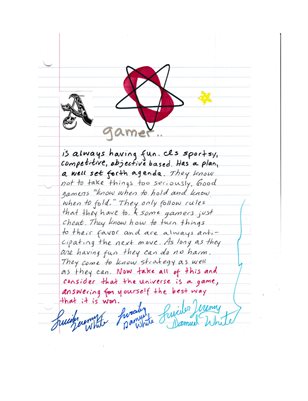 A
gamer..
is always having fun. It's sportsy,
competitive, objective based. Has a plan,
a well set forth agenda. They know
not to take things too seriously. Good
gamers "know when to hold and know
when to fold." They only follow rules
that they have to & some gamers just
cheat. They know how to turn things
to their favor and are always anti-
cipating the next move. As long as they
are having fun they can do no harm.
They come to know strategy as well
as they can. Now take all of this and
consider that the universe is a game,
answering for yourself the best way
that it is won.
Jeremy
White
Daniel
White
Jeremy
Daniel White